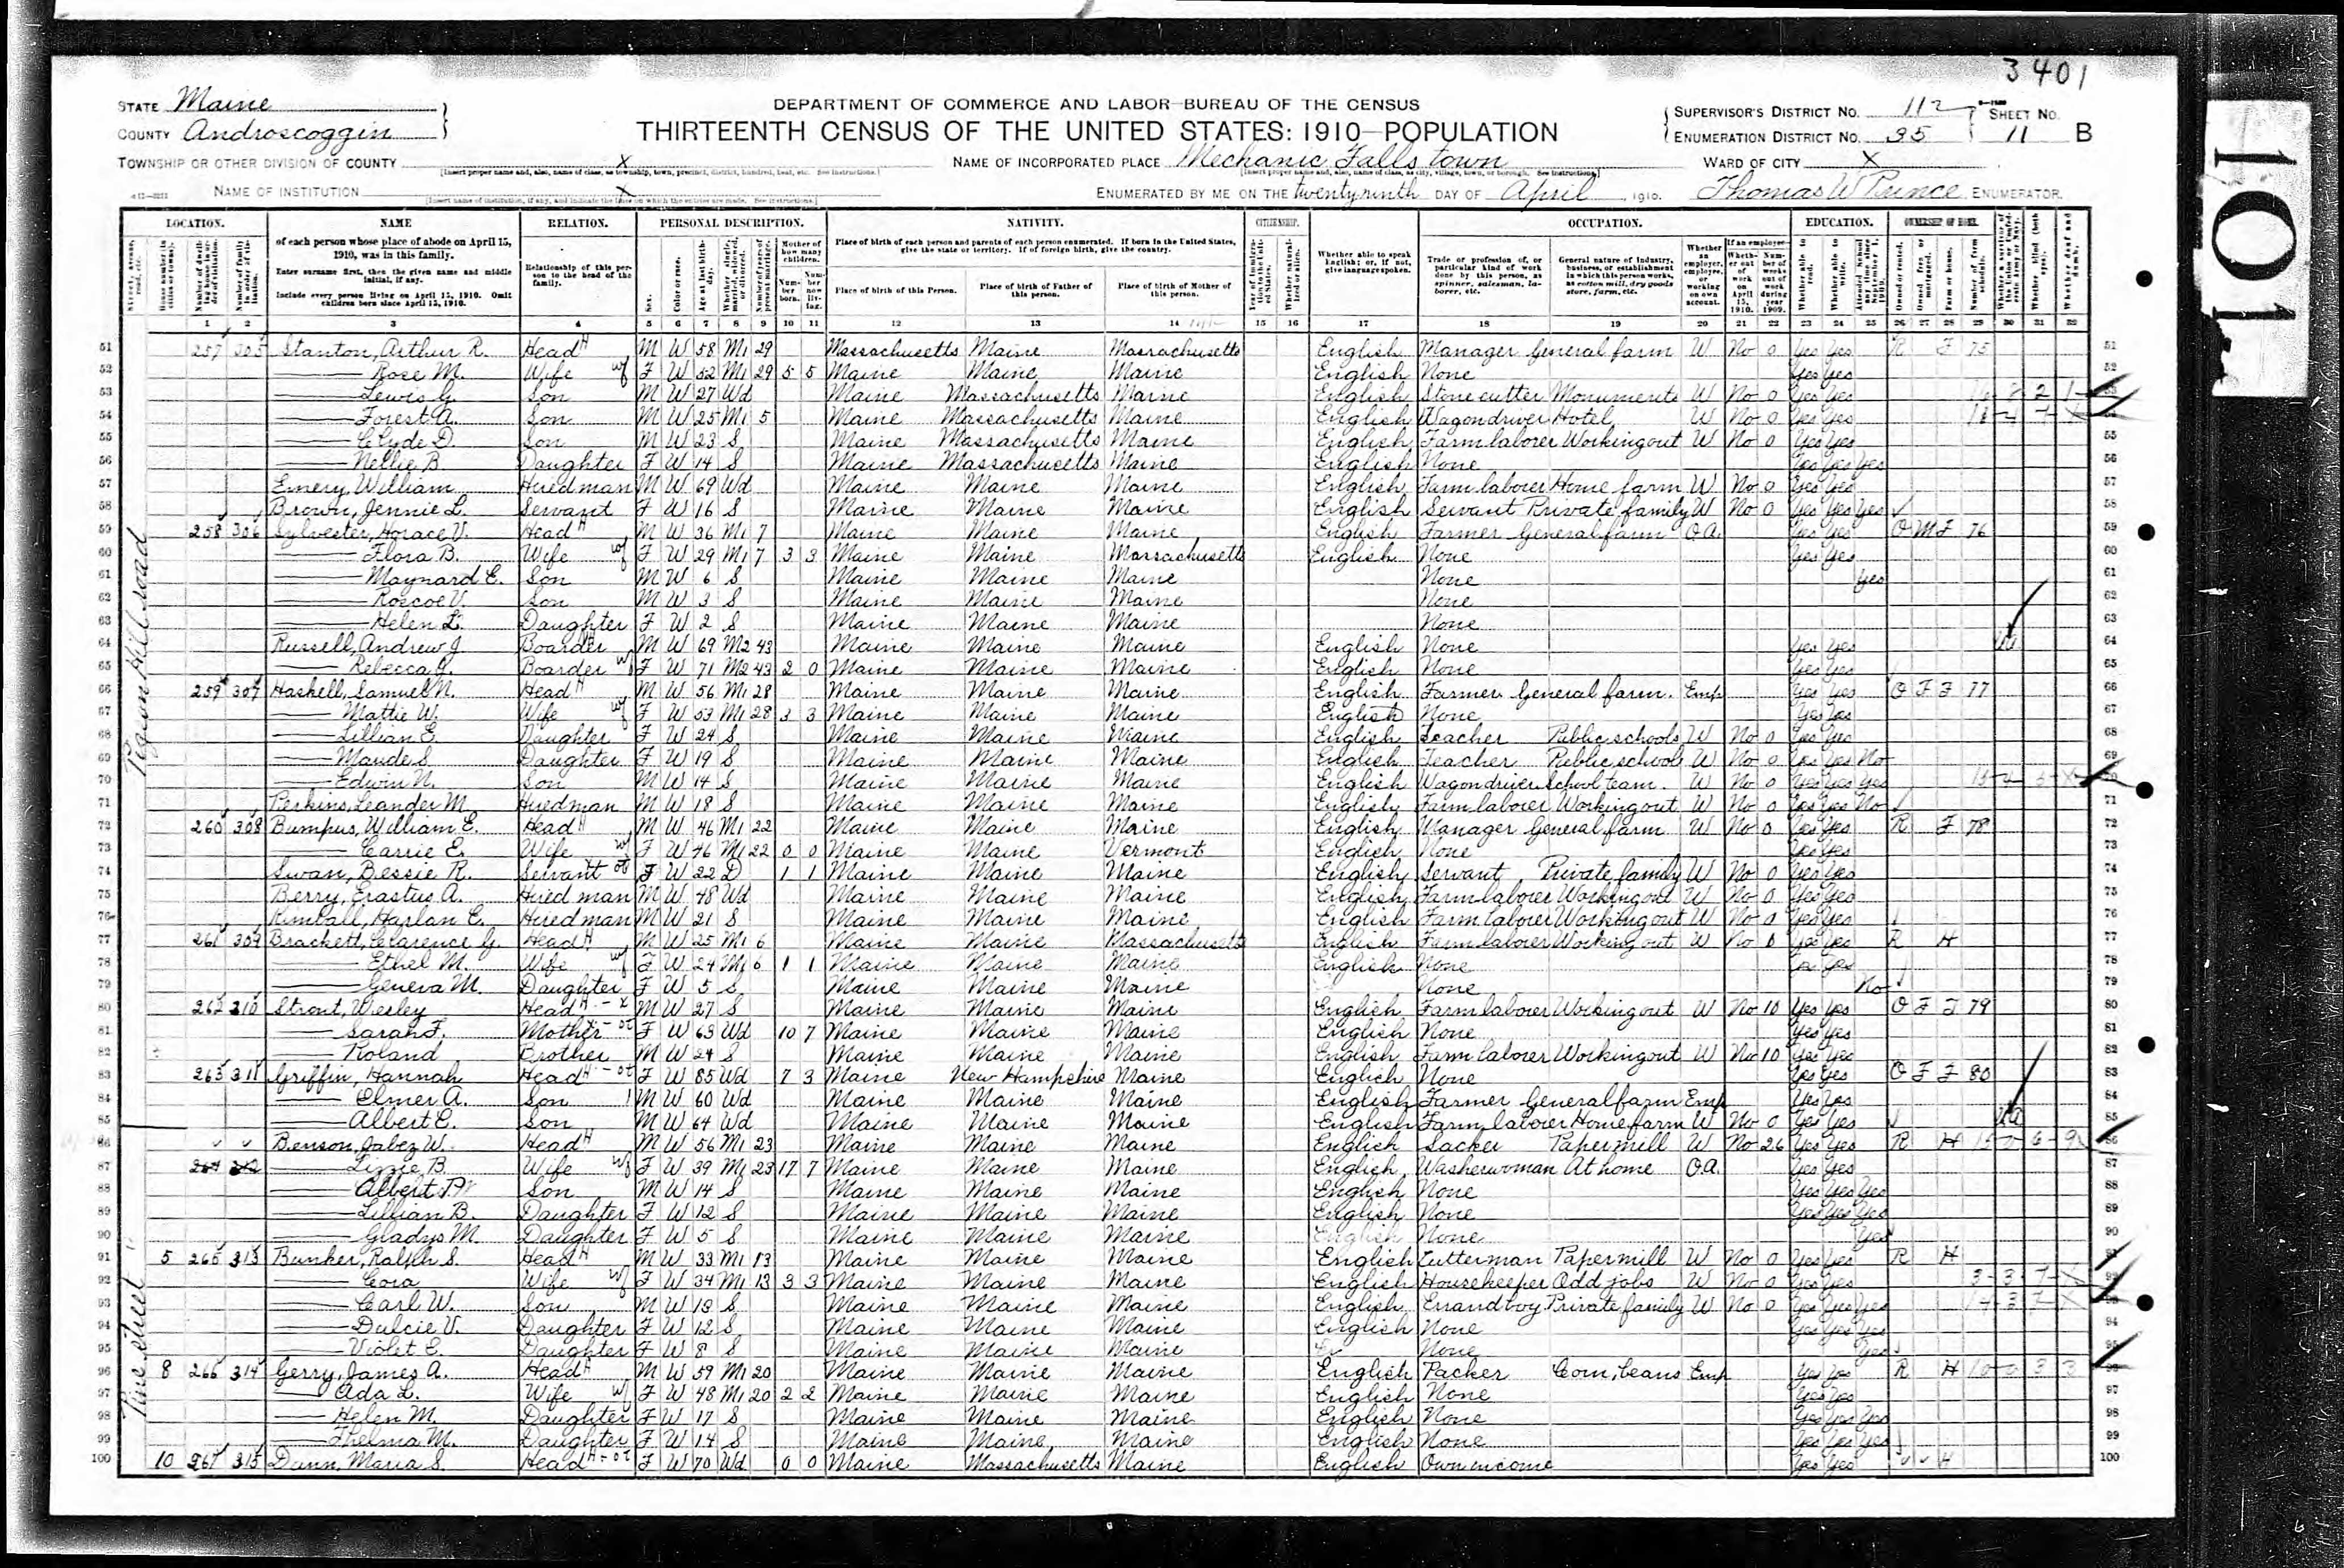 3401
STATE Maine
COUNTY Androscoggin
TOWNSHIP OR OTHER DIVISION OF COUNTY X
NAME OF INSTITUTION X
DEPARTMENT OF COMMERCE AND LABOR—BUREAU OF THE CENSUS
THIRTEENTH CENSUS OF THE UNITED STATES: 1910—POPULATION
NAME OF INCORPORATED PLACE Mechanic Falls town
ENUMERATED BY ME ON THE twenty ninth DAY OF April, 1910. Thomas W Prince ENUMERATOR.
SUPERVISOR'S DISTRICT NO. 112
ENUMERATION DISTRICT NO. 35
SHEET NO. 11 B
WARD OF CITY X
101
LOCATION. NAME RELATION. PERSONAL DESCRIPTION. NATIVITY. CITIZENSHIP. OCCUPATION. EDUCATION. OWNERSHIP OF HOME.
of each person whose place of abode on April 15, 1910, was in this family.
Enter surname first, then the given name and middle initial, if any.
Include every person living on April 15, 1910. Omit children born since April 15, 1910.
Relationship of this person to the head of the family.
Place of birth of each person and parents of each person enumerated. If born in the United States, give the state or territory. If of foreign birth, give the country.
Place of birth of this Person. Place of birth of Father of this person. Place of birth of Mother of this person.
Whether able to speak English; or, if not, give language spoken.
Trade or profession of, or particular kind of work done by this person, as spinner, salesman, laborer, etc.
General nature of industry, business, or establishment in which this person works, as cotton mill, dry goods store, farm, etc.
1 2 3 4 5 6 7 8 9 10 11 12 13 14 15 16 17 18 19 20 21 22 23 24 25 26 27 28 29 30 31 32
Pigeon Hill road
51 257 305 Stanton, Arthur R. Head M W 58 M1 29 Massachusetts Maine Massachusetts English Manager General farm W No 0 Yes Yes R F 75
52 Rose M. Wife F W 52 M1 29 5 5 Maine Maine Maine English None Yes Yes
53 Lewis G. Son M W 27 Wd Maine Massachusetts Maine English Stone cutter Monuments W No 0 Yes Yes
54 Forest A. Son M W 25 M1 5 Maine Massachusetts Maine English Wagon driver Hotel W No 0 Yes Yes
55 Clyde D. Son M W 23 S Maine Massachusetts Maine English Farm laborer Working out W No 0 Yes Yes
56 Nellie B. Daughter F W 14 S Maine Massachusetts Maine English None Yes Yes Yes
57 Emery, William Hired man M W 69 Wd Maine Maine Maine English Farm laborer Home farm W No 0 Yes Yes
58 Brown, Jennie L. Servant F W 16 S Maine Maine Maine English Servant Private family W No 0 Yes Yes Yes
59 258 306 Sylvester, Horace V. Head M W 36 M1 7 Maine Maine Maine English Farmer General farm OA Yes Yes O M F 76
60 Flora B. Wife F W 29 M1 7 3 3 Maine Maine Massachusetts English None Yes Yes
61 Maynard E. Son M W 6 S Maine Maine Maine None Yes
62 Roscoe V. Son M W 3 S Maine Maine Maine None
63 Helen L. Daughter F W 2 S Maine Maine Maine None
64 Russell, Andrew J. Boarder M W 69 M2 43 Maine Maine Maine English None Yes Yes
65 Rebecca J. Boarder F W 71 M2 43 2 0 Maine Maine Maine English None Yes Yes
66 259 307 Haskell, Samuel N. Head M W 56 M1 28 Maine Maine Maine English Farmer General farm. Emp Yes Yes O F F 77
67 Mattie W. Wife F W 53 M1 28 3 3 Maine Maine Maine English None Yes Yes
68 Lillian E. Daughter F W 24 S Maine Maine Maine English Teacher Public schools W No 0 Yes Yes
69 Maude S. Daughter F W 19 S Maine Maine Maine English Teacher Public school W No 0 Yes Yes No
70 Edwin N. Son M W 14 S Maine Maine Maine English Wagon driver School team W No 0 Yes Yes Yes
71 Perkins, Leander M. Hired man M W 18 S Maine Maine Maine English Farm laborer Working out W No 0 Yes Yes No
72 260 308 Bumpus, William E. Head M W 46 M1 22 Maine Maine Maine English Manager General farm W No 0 Yes Yes R F 78
73 Carrie E. Wife F W 46 M1 22 0 0 Maine Maine Vermont English None Yes Yes
74 Swan, Bessie R. Servant F W 22 D 1 1 Maine Maine Maine English Servant Private family W No 0 Yes Yes
75 Berry, Erastus A. Hired man M W 48 Wd Maine Maine Maine English Farm laborer Working out W No 0 Yes Yes
76 Kimball, Harlan E. Hired man M W 21 S Maine Maine Maine English Farm laborer Working out W No 0 Yes Yes
77 261 309 Brackett, Clarence G. Head M W 25 M1 6 Maine Maine Massachusetts English Farm laborer Working out W No 0 Yes Yes R H
78 Ethel M. Wife F W 24 M1 6 1 1 Maine Maine Maine English None Yes Yes
79 Geneva M. Daughter F W 5 S Maine Maine Maine None No
80 262 310 Strout, Wesley Head M W 27 S Maine Maine Maine English Farm laborer Working out W No 10 Yes Yes O F F 79
81 Sarah F. Mother F W 63 Wd 10 7 Maine Maine Maine English None Yes Yes
82 Roland Brother M W 24 S Maine Maine Maine English Farm laborer Working out W No 10 Yes Yes
83 263 311 Griffin, Hannah Head F W 85 Wd 7 3 Maine New Hampshire Maine English None Yes Yes O F F 80
84 Elmer A. Son M W 60 Wd Maine Maine Maine English Farmer General farm Emp Yes Yes
85 Albert E. Son M W 64 Wd Maine Maine Maine English Farm laborer Home farm W No 0 Yes Yes UA
Pine street
86 Benson, Jabez W. Head M W 56 M1 23 Maine Maine Maine English Sacker Paper mill W No 26 Yes Yes R H
87 264 312 Lizzie B. Wife F W 39 M1 23 17 7 Maine Maine Maine English Washerwoman At home OA Yes Yes
88 Albert Son M W 14 S Maine Maine Maine English None Yes Yes Yes
89 Lillian B. Daughter F W 12 S Maine Maine Maine English None Yes Yes Yes
90 Gladys M. Daughter F W 5 S Maine Maine Maine English None Yes
91 5 265 313 Bunker, Ralph S. Head M W 33 M1 13 Maine Maine Maine English Cutterman Paper mill W No 0 Yes Yes R H
92 Cora Wife F W 34 M1 13 3 3 Maine Maine Maine English Housekeeper Odd jobs W No 0 Yes Yes
93 Carl W. Son M W 13 S Maine Maine Maine English Errand boy Private family W No 0 Yes Yes Yes
94 Dulcie V. Daughter F W 12 S Maine Maine Maine English None Yes Yes Yes
95 Violet E. Daughter F W 8 S Maine Maine Maine None Yes
96 8 266 314 Gerry, James A. Head M W 59 M1 20 Maine Maine Maine English Packer Corn, beans Emp Yes Yes R H
97 Ada L. Wife F W 48 M1 20 2 2 Maine Maine Maine English None Yes Yes
98 Helen M. Daughter F W 17 S Maine Maine Maine English None Yes Yes Yes
99 Thelma M. Daughter F W 14 S Maine Maine Maine English None Yes Yes Yes
100 10 267 315 Dunn, Maria S. Head F W 70 Wd 0 0 Maine Massachusetts Maine English Own income Yes Yes H